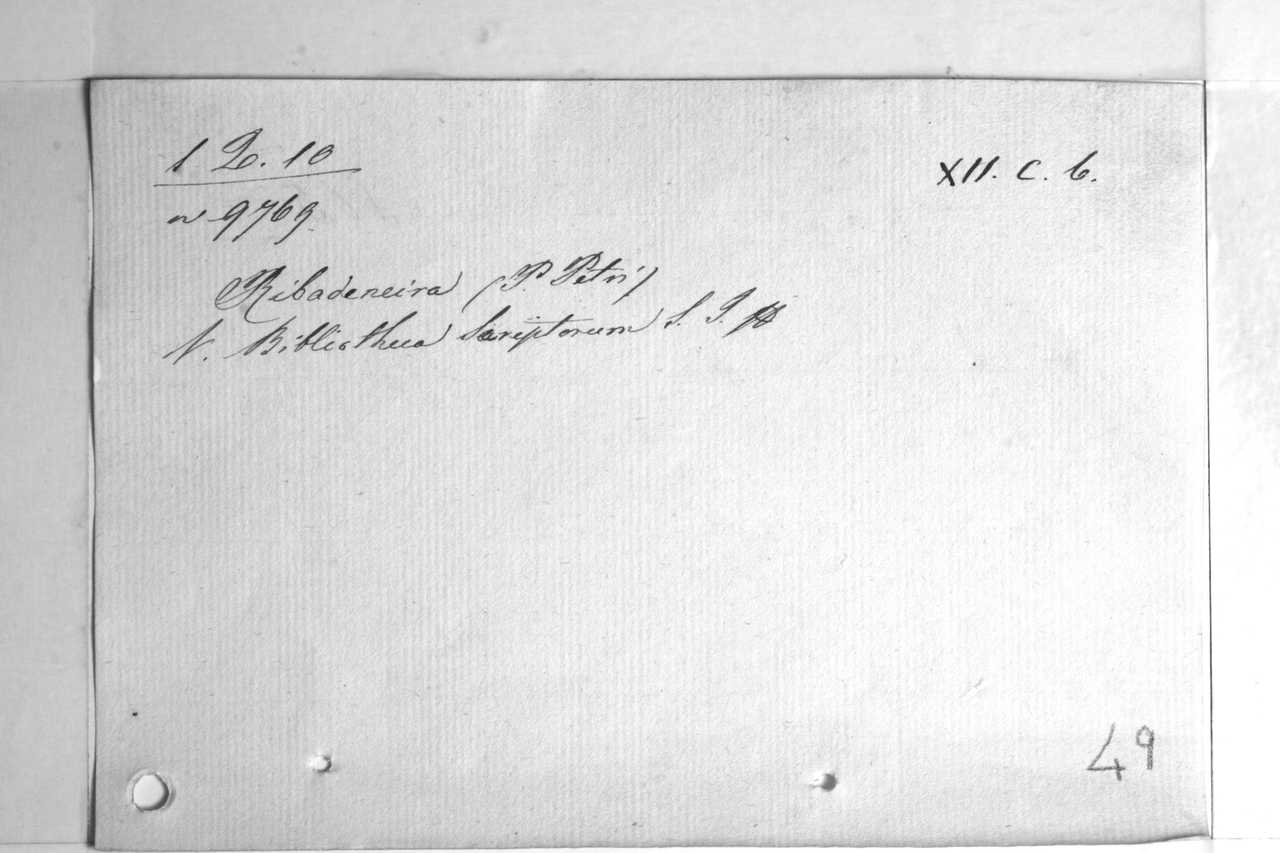 1 D. 10
XII. C. 6.
n 9769.
Ribadeneira (P. Petri)
V. Bibliotheca Scriptorum S. J.
49